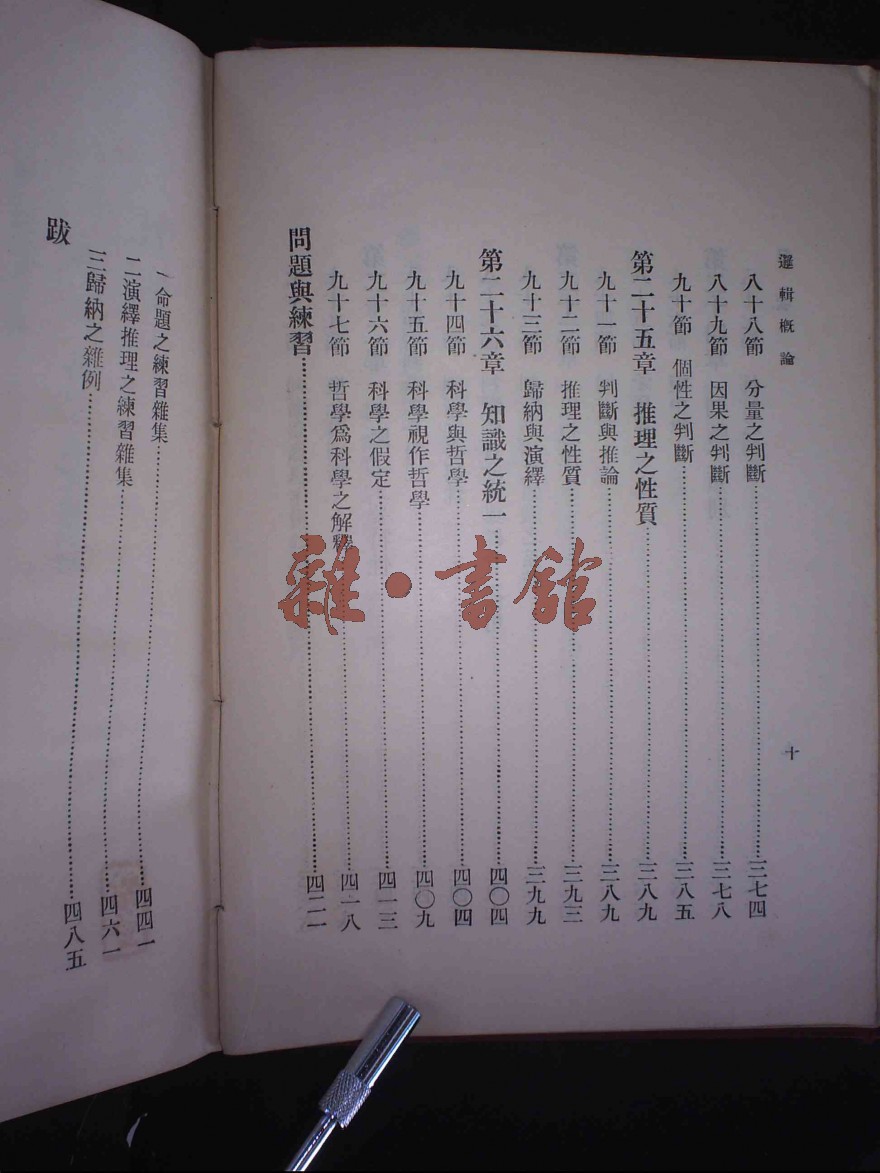 邏輯概論 十
八十八節 分量之判斷……三七四
八十九節 因果之判斷……三七八
九十節 個性之判斷……三八五
第二十五章 推理之性質……三八九
九十一節 判斷與推論……三八九
九十二節 推理之性質……三九三
九十三節 歸納與演繹……三九九
第二十六章 知識之統一……四〇四
九十四節 科學與哲學……四〇四
九十五節 科學視作哲學……四〇九
九十六節 科學之假定……四一三
九十七節 哲學爲科學之解釋……四一八
問題與練習……四二一
一命題之練習雜集……四四一
二演繹推理之練習雜集……四六一
三歸納之雜例……四八五
跋
雜·書館